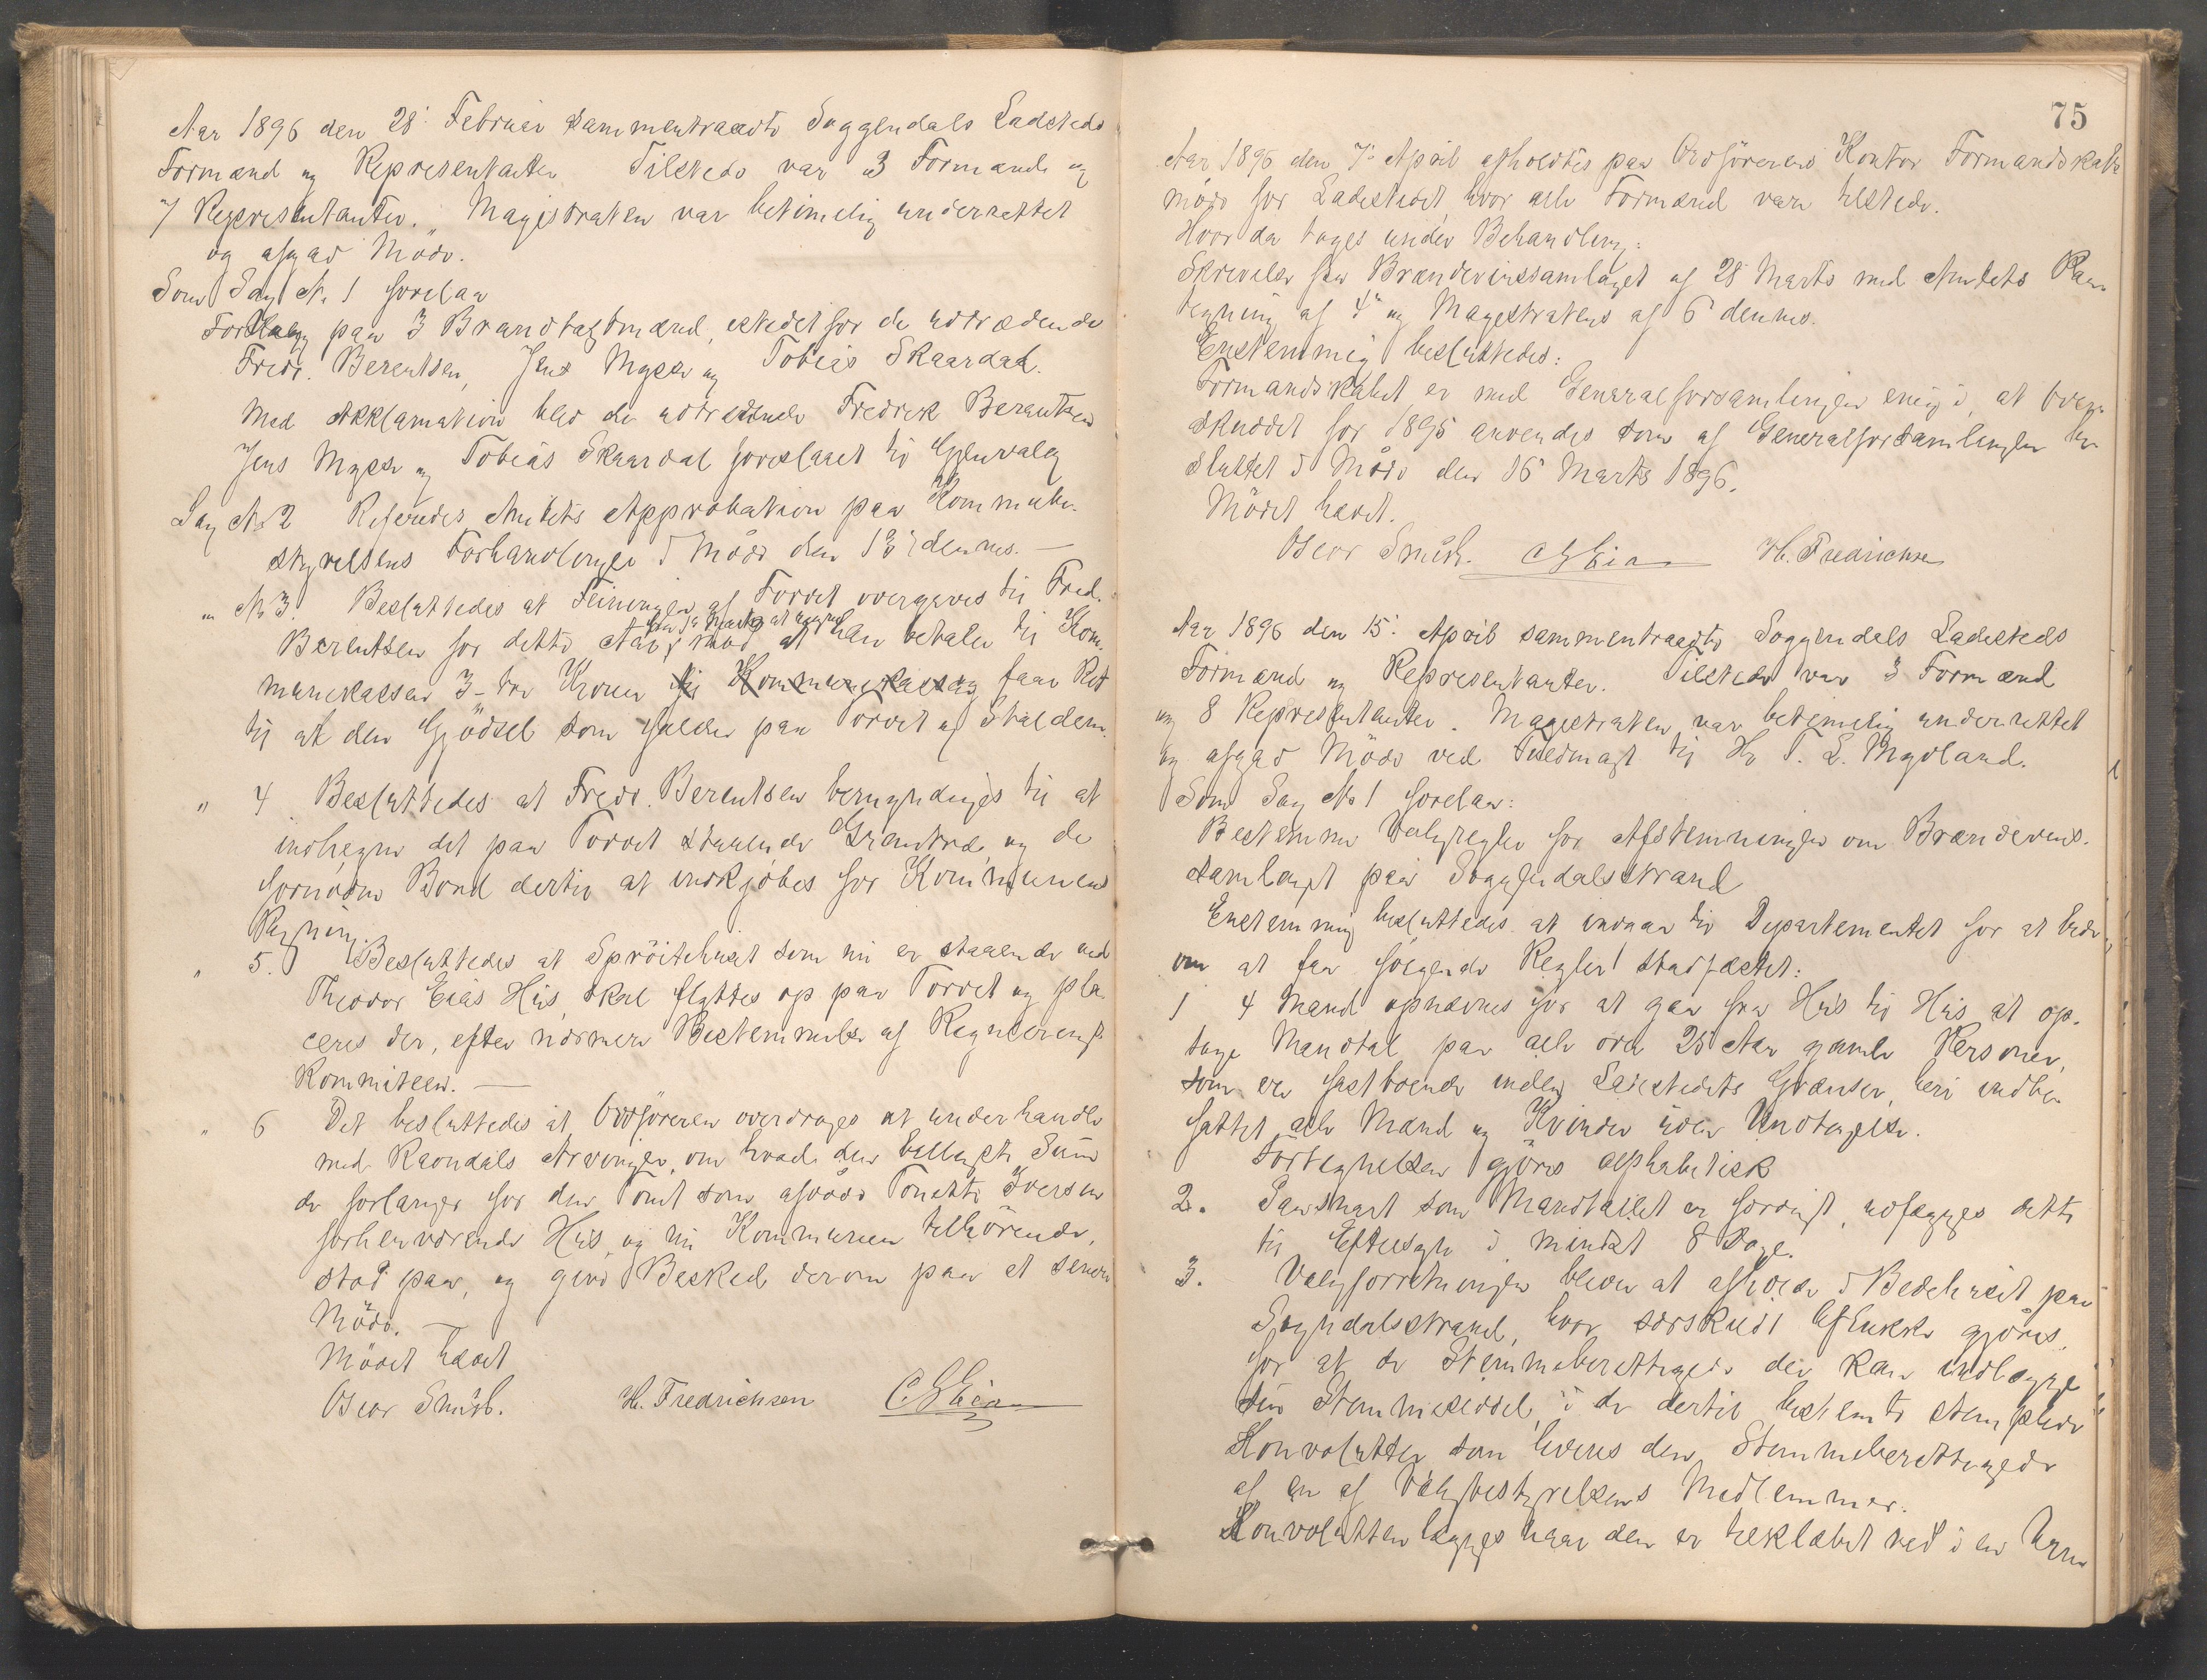 Aar 1896 den 28' Februar sammentraadte Soggendals Ladesteds
Formænd og Repræsentanter Tilstede var 3 Formænd og
7 Repræsentanter. Magistraten var betimelig underrettet
og afgav Møde.
Som Sag No 1 forelaa
Forslag paa 3 Brandtaxtmænd, istedet for de udtrædende
Fredr. Berentsen, Jens Mysse og Tobias Skaardal.
Med Akklamation blev de udtrædende Fredrik Berentsen
Jens Mysse og Tobias Skaardal foreslaaet til Gjenvalg
Sag No 2 Refereredes Amtets Approbation paa Kommune-
styrelsens Forhandlinger i Møde den 13' dennes. —
" No 3. Besluttedes at Feiningen af Torvet overgives til Fred.
Berentsen for dette Aar, mod at han betaler til Kom-
munekassen 3- tre Kroner til Kommunekassen faar Ret
til at den Gjødsel som falder paa Torvet og Stalden.
" 4 Besluttedes at Fredr. Berentsen bemyndiges til at
indhegne det paa Torvet staaende Grantræ, og de
fornødne Bord dertil at indkjøbes for Kommunens
Regning.
" 5. Besluttedes at Sprøitehuset som nu er staaende ved
Theodor Eias Hus, skal flyttes op paa Torvet og pla-
ceres der, efter nærmere Bestemmelse af Regulerings-
Kommiteen. —
" 6 Det besluttedes at Ordføreren overdrages at underhandle
med Raondals Arvinger, om hvad den billigste Sum
de forlanger for den Tomt som afdøde Tonette Iversen
forhenværende Hus, og nu Kommunen tilhørende,
stod paa, og give Besked derom paa et senere
Møde. —
Mødet hævet
Oscar Smith. H. Fredrichsen C G Eia
75
Aar 1896 den 7' April afholdtes paa Ordførerens Kontor Formandskabs-
møde for Ladestedet, hvor alle Formænd var tilstede.
Hvor da toges under Behandling:
Skrivelse fra Brændevinssamlaget af 28' Marts med Amtets Paa-
tegning af 4' og Magistratens af 6' dennes.
Enstemmig besluttedes:
Formandskabet er med Generalforsamlingen enig i, at Over-
skuddet for 1895 anvendes som af Generalforsamlingen be-
sluttet i Møde den 16' Marts 1896.
Mødet hævet.
Oscar Smith. C G Eia H. Fredrichsen
Aar 1896 den 15' April sammentraadte Soggendals Ladesteds
Formænd og Repræsentanter. Tilstede var 3 Formænd
og 8 Repræsentanter. Magistraten var betimelig underrettet
og afgav Møde ved Fuldmagt til Hr T. L. Mydland.
Som Sag No 1 forelaa:
Bestemme Valgregler for Afstemningen om Brændevins-
samlaget paa Soggendalsstrand
Enstemmig besluttedes at indgaa til Departementet for at bede
om at faa følgende Regler stadfæstet:
1 4 Mand opnævnes for at gaa fra Hus til Hus at op-
tage Mandtal paa alle over 25 Aar gamle Personer,
som er fastboende inden Ladestedets Grænser, heri indbe-
fattet alle Mænd og Kvinder uden Undtagelse.
Fortegnelsen gjøres alphabetisk
2. Saasnart som Mandtallet er færdigt, udlægges dette
til Eftersyn i mindst 8 Dage.
3. Valgforretningen bliver at afholde i Bedehuset paa
Sogndalsstrand, hvor særskilt Aflukke gjøres,
for at de Stemmeberettigede der kan indlægge
sin Stemmeseddel, i de dertil bestemte stemplede
Konvolutter som leveres den Stemmeberettigede
af en af Valgbestyrelsens Medlemmer.
Konvolutten lægges naar den er tilklæbet ned i en Urne